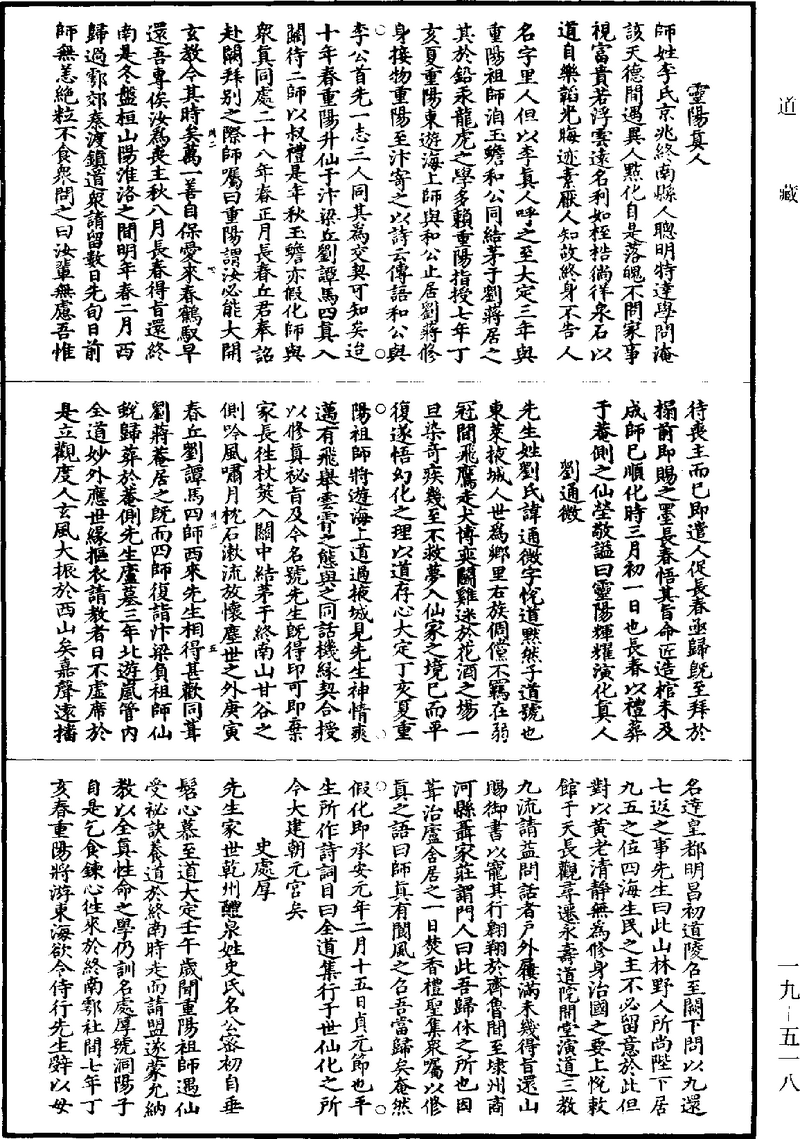 道藏
靈陽真人
師姓李氏京兆終南縣人聰明特達學問淹
該天德間遇異人點化自是落魄不問家事
視富貴若浮雲遠名利如桎梏徜徉泉石以
道自樂韜光晦迹素厭人知故終身不告人
名字里人但以李真人呼之至大定三年與
重陽祖師洎玉蟾和公同結茅于劉蔣居之
其於鉛汞龍虎之學多賴重陽指授七年丁
亥夏重陽東遊海上師與和公止居劉蔣修
身接物重陽至汴寄之以詩云傳語和公與
李公首先一志三人同其為交契可知矣迨
十年春重陽升仙于汴梁丘劉譚馬四真入
關待二師以叔禮是年秋玉蟾亦假化師與
衆真同處二十八年春正月長春丘君奉詔
赴闕拜別之際師囑曰重陽謂汝必能大開
玄教今其時矣萬一善自保愛來春鶴馭早
還吾專俟汝為喪主秋八月長春得旨還終
南是冬盤桓山陽淮洛之間明年春二月西
歸過鄠郊秦渡鎮道衆請留數日先旬日前
師無恙絕粒不食衆問之曰汝輩無慮吾惟
待喪主而已即遣人促長春亟歸既至拜於
榻前即賜之墨長春悟其旨命匠造棺未及
成師已順化時三月初一日也長春以禮葬
于菴側之仙塋敬謚曰靈陽輝耀演化真人
劉通微
先生姓劉氏諱通微字悅道默然子道號也
東萊掖城人世為鄉里右族倜儻不羈在弱
冠間飛鷹走犬博奕鬭雞迷於花酒之場一
旦染奇疾幾至不救夢入仙家之境已而平
復遂悟幻化之理以道存心大定丁亥夏重
陽祖師將遊海上道過掖城見先生神情爽
邁有飛舉雲霄之態與之同話機緣契合授
以修真祕旨及今名號先生既得印可即棄
家長往杖策入關中結茅于終南山甘谷之
側吟風嘯月枕石漱流放懷塵世之外庚寅
春丘劉譚馬四師西來先生相得甚歡同葺
劉蔣菴居之既而四師復詣汴梁負祖師仙
蛻歸葬於菴側先生廬墓三年北遊嵐管內
全道妙外應世緣摳衣請教者日不虛席於
是立觀度人玄風大振於西山矣嘉聲遠播
名達皇都明昌初道陵召至闕下問以九還
七返之事先生曰此山林野人所尚陛下居
九五之位四海生民之主不必留意於此但
對以黃老清靜無為修身治國之要上悅敕
館于天長觀尋遷永壽道院開堂演道三教
九流請益問話者戶外屨滿未幾得旨還山
賜御書以寵其行翱翔於齊魯間至棣州商
河縣聶家莊謂門人曰此吾歸休之所也因
葺治廬舍居之一日焚香禮聖集衆囑以修
真之語曰師真有閬風之召吾當歸矣奄然
假化即承安元年二月十五日貞元節也平
生所作詩詞目曰全道集行于世仙化之所
今大建朝元宮矣
史處厚
先生家世乾州醴泉姓史氏名公密初自垂
髫心慕至道大定壬午歲聞重陽祖師遇仙
受祕訣養道於終南時走而請盟遂蒙允納
教以全真性命之學仍訓名處厚號洞陽子
自是乞食鍊心往來於終南鄠社間七年丁
亥春重陽將游東海欲令侍行先生辭以母
一九—五一八